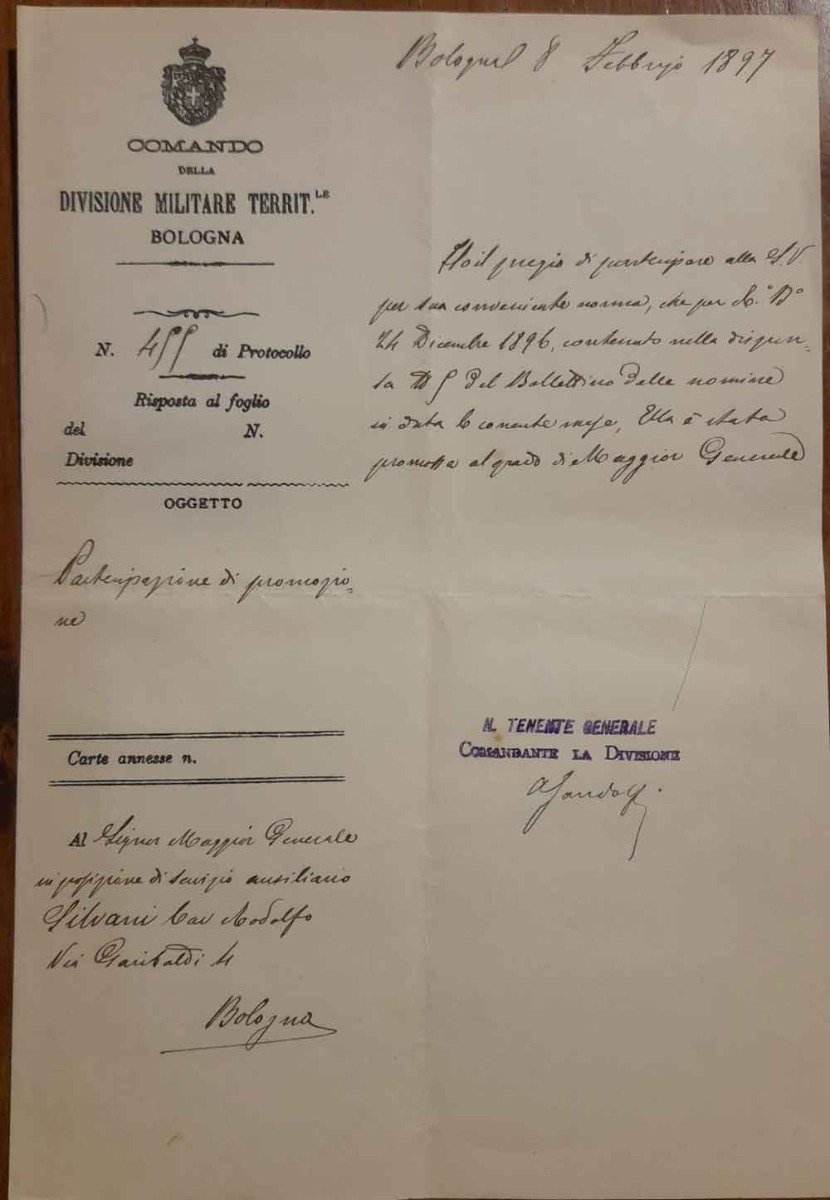 Bologna 8 Febbrajo 1897
COMANDO
DELLA
DIVISIONE MILITARE TERRIT.LE
BOLOGNA
N. 455 di Protocollo
Risposta al foglio
del N.
Divisione
OGGETTO
Partecipazione di promozio-
ne
Ho il pregio di partecipare alla S.V.
per sua conveniente norma, che per R.° D.°
24 Dicembre 1896, contenuto nella dispen-
sa 5 del Bollettino delle nomine
in data 6 corrente mese, Ella è stata
promossa al grado di Maggior Generale
IL TENENTE GENERALE
COMANDANTE LA DIVISIONE
Carte annesse n.
Al Signor Maggior Generale
in posizione di servizio ausiliario
Silvani Cav Rodolfo
Via Garibaldi 4
Bologna